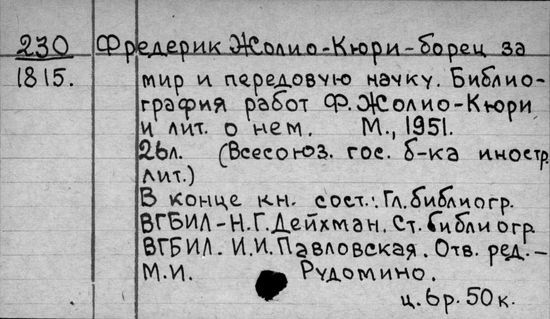 230 Фредерик Жолио-Кюри-борец за
1815. мир и передовую науку. Библио-
графия работ Ф. Жолио-Кюри
и лит. о нем. М., 1951.
26л. (Всесоюз. гос. б-ка иностр.
лит.)
В конце кн. сост.: Гл. библиогр.
ВГБИЛ-Н.Г. Дейхман. Ст. библиогр
ВГБИЛ. И.И. Павловская. Отв. ред.-
М.И. Рудомино.
ц. 6р. 50к.